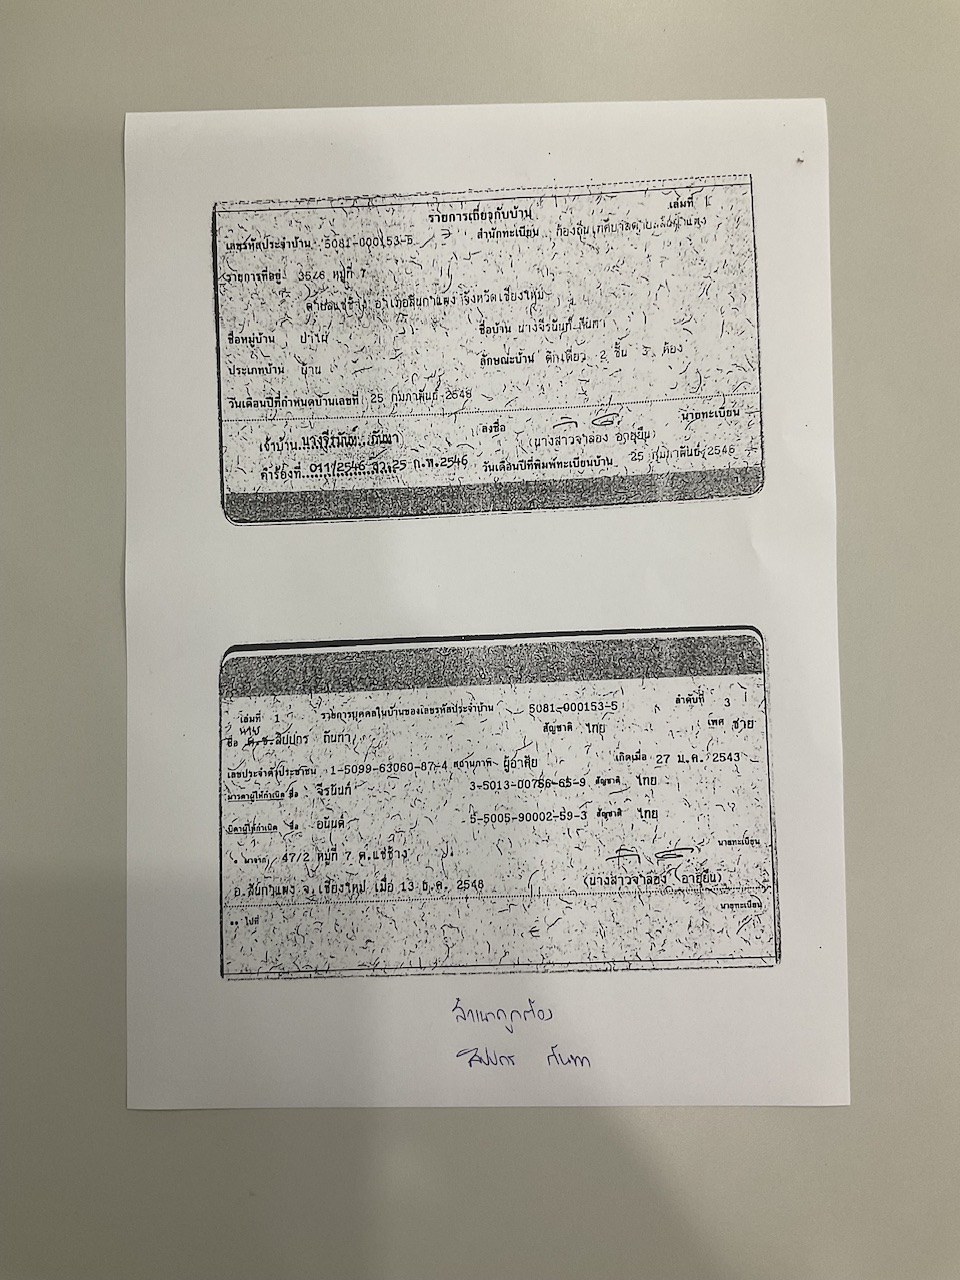 รายการเกี่ยวกับบ้าน เล่มที่ 1
เลขรหัสประจำบ้าน 5081-000153-5 สำนักทะเบียน ท้องถิ่นเทศบาลตำบลสันกำแพง
รายการที่อยู่ 35/6 หมู่ที่ 7
ตำบลแช่ช้าง อำเภอสันกำแพง จังหวัดเชียงใหม่
ชื่อหมู่บ้าน ป่าไผ่ ชื่อบ้าน นางจีรนันท์ กันทา
ประเภทบ้าน บ้าน ลักษณะบ้าน ตึกเดี่ยว 2 ชั้น 3 ห้อง
วันเดือนปีที่กำหนดบ้านเลขที่ 25 กุมภาพันธ์ 2546
ลงชื่อ นายทะเบียน
เจ้าบ้าน นางจีรนันท์ กันทา (นางสาวจำลอง อายุยืน)
คำร้องที่ 011/2546 ลว.25 ก.พ.2546 วันเดือนปีที่พิมพ์ทะเบียนบ้าน 25 กุมภาพันธ์ 2546
เล่มที่ 1 รายการบุคคลในบ้านของเลขรหัสประจำบ้าน 5081-000153-5 ลำดับที่ 3
นาย
ชื่อ ด.ช.สิปปกร กันทา สัญชาติ ไทย เพศ ชาย
เลขประจำตัวประชาชน 1-5099-63060-87-4 สถานภาพ ผู้อาศัย เกิดเมื่อ 27 ม.ค. 2543
มารดาผู้ให้กำเนิด ชื่อ จีรนันท์ 3-5013-00766-65-9 สัญชาติ ไทย
บิดาผู้ให้กำเนิด ชื่อ อนันต์ 5-5005-90002-59-3 สัญชาติ ไทย
* มาจาก 47/2 หมู่ที่ 7 ต.แช่ช้าง นายทะเบียน
อ.สันกำแพง จ.เชียงใหม่ เมื่อ 13 ธ.ค. 2546 (นางสาวจำลอง อายุยืน)
** ไปที่ นายทะเบียน
สำเนาถูกต้อง
สิปปกร กันทา